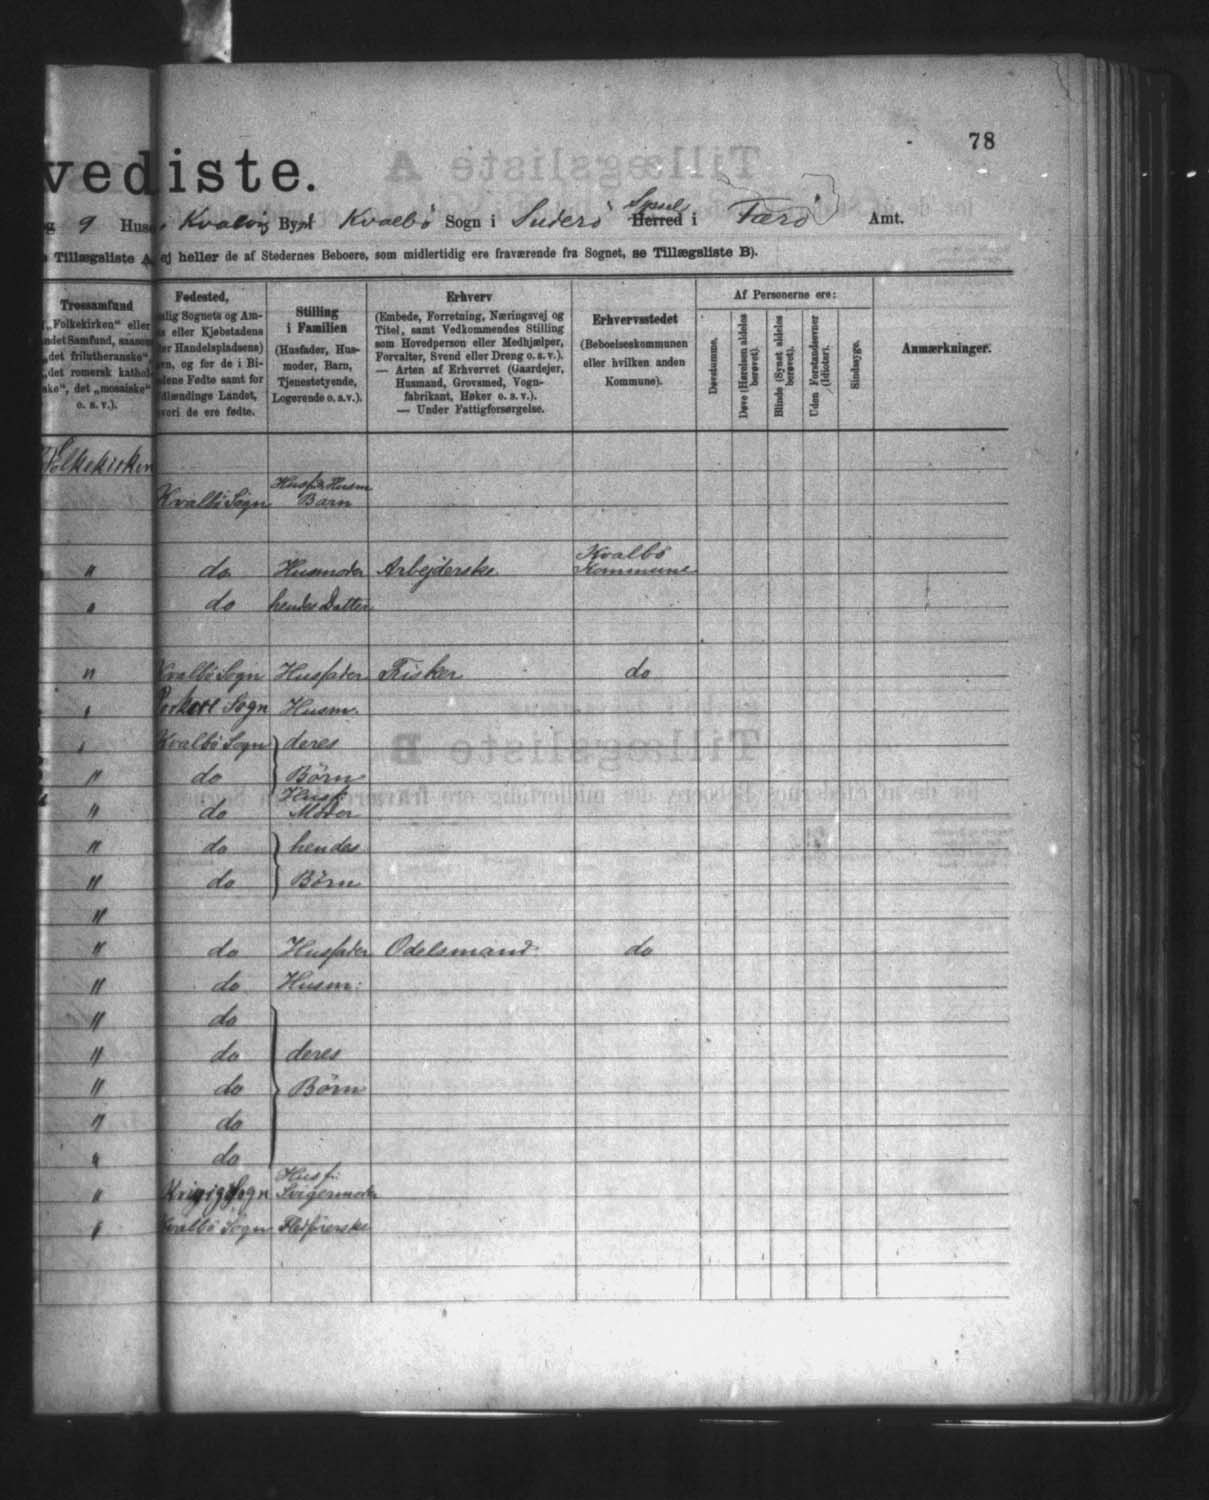 78
vedliste.
g 9 Huse i Kvalvig By Kvalbø Sogn i Suderø Syssel Herred i Færø Amt.
Tillægsliste A, ej heller de af Stedernes Beboere, som midlertidig ere fraværende fra Sognet, se Tillægsliste B).
Af Personerne ere:
Trossamfund
„Folkekirken“ eller
andet Samfund, saasom
„det frilutheranske“,
det romersk kathol-
ske“, det „mosaiske“
o. s. v.).
Fødested,
nlig Sognets og Am-
eller Kjøbstadens
er Handelspladsens)
vn, og for de i Bi-
dene Fødte samt for
dlændinge Landet,
vori de ere fødte.
Stilling
i Familien
(Husfader, Hus-
moder, Barn,
Tjenestetyende,
Logerende o.s.v.).
Erhverv
(Embede, Forretning, Næringsvej og
Titel, samt Vedkommendes Stilling
som Hovedperson eller Medhjælper,
Forvalter, Svend eller Dreng o. s. v.).
— Arten af Erhvervet (Gaardejer,
Husmand, Grovsmed, Vogn-
fabrikant, Høker o. s. v.).
— Under Fattigforsørgelse.
Erhvervsstedet
(Beboelseskommunen
eller hvilken anden
Kommune).
Døvstumme.
Døve (Hørelsen aldeles
berøvet).
Blinde (Synet aldeles
berøvet).
Uden Forstandsevner
(Idioter).
Sindssyge.
Anmærkninger.
Folkekirken
Kvalbø Sogn Husf: Husm Barn
" do Husmoder Arbejderske Kvalbø Kommune
" do hendes Datter
" Kvalbø Sogn Husfader Fisker do
" Porkere Sogn Husm.
" Kvalbø Sogn deres
" do Børn
" do Husf: Moder
" do hendes
" do Børn
"
" do Husfader Odelsmand do
" do Husm:
" do
" do deres
" do Børn
" do
" do
" Sogn Husf: Svigermoder
" Kvalbø Sogn Fledførerske